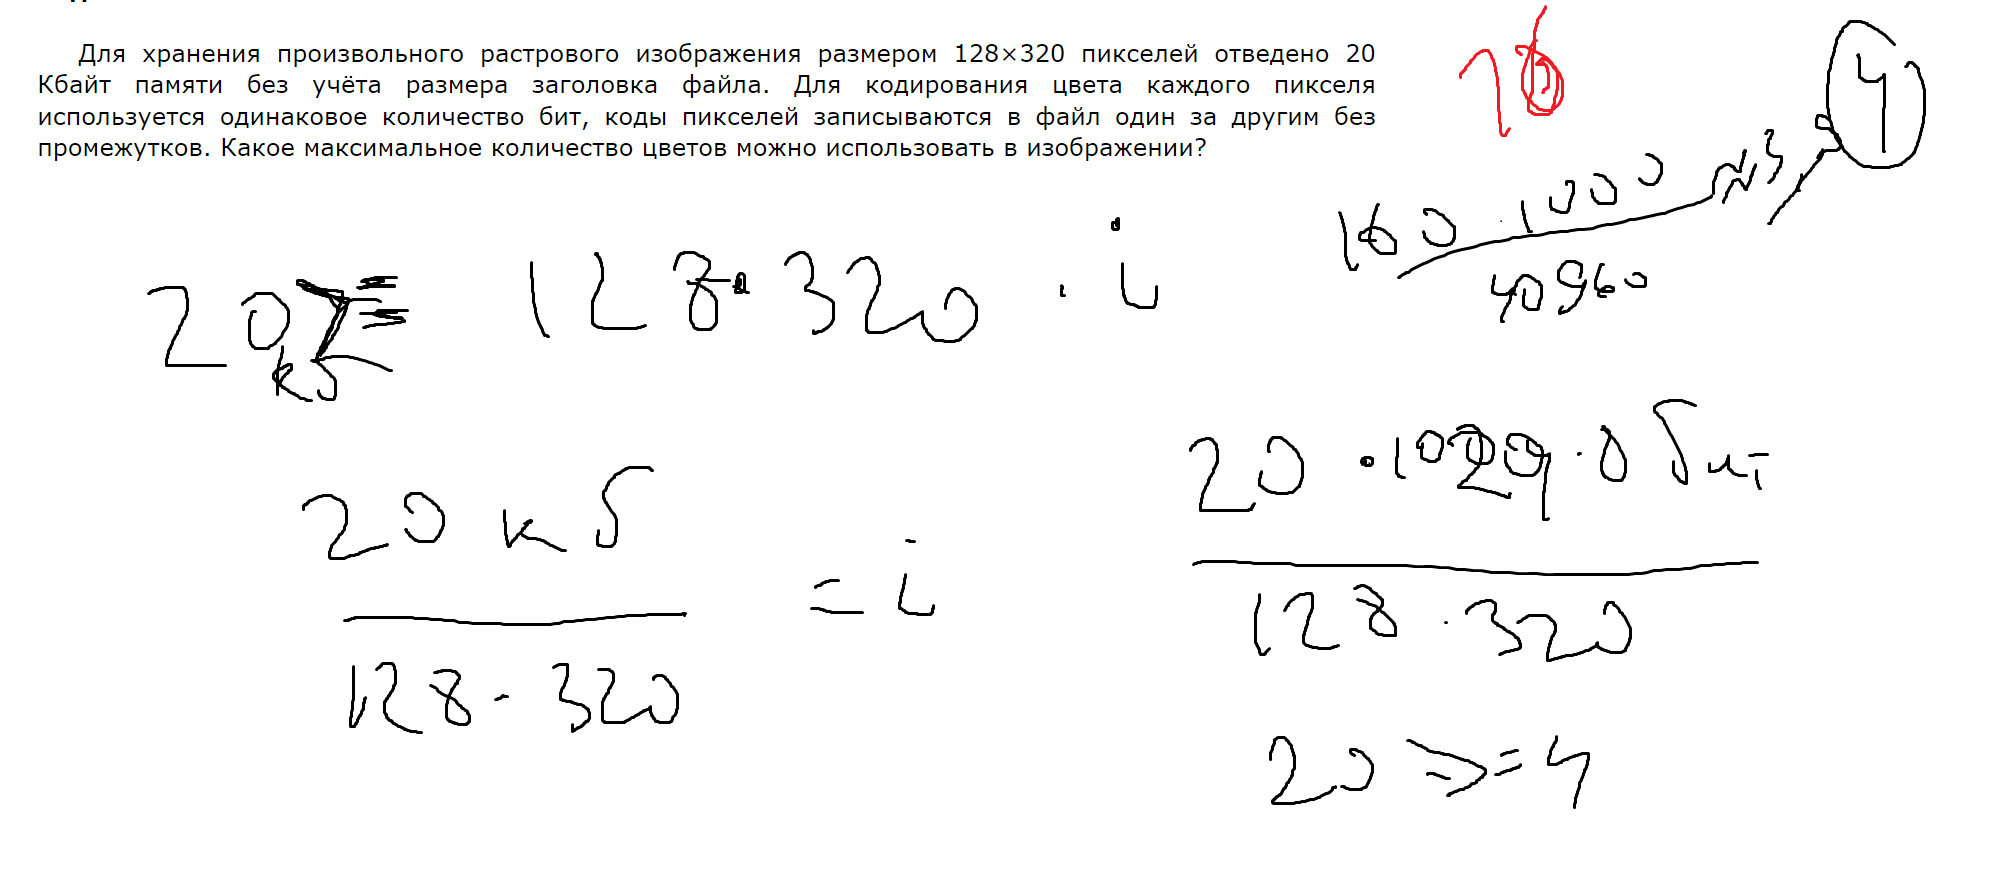 Для хранения произвольного растрового изображения размером 128×320 пикселей отведено 20
Кбайт памяти без учёта размера заголовка файла. Для кодирования цвета каждого пикселя
используется одинаковое количество бит, коды пикселей записываются в файл один за другим без
промежутков. Какое максимальное количество цветов можно использовать в изображении?
16
4
160 · 1000
40960
20
кб
128 · 320 · i
20 · 1024 · 8 бит
128 · 320
20 кб
= i
128 · 320
20 >= 4